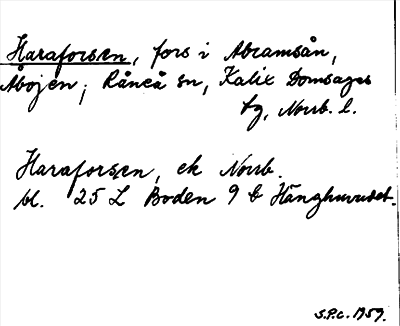 Haraforsen, fors i Abramsån,
Åbojen; Råneå sn, Kalix Domsagas
tg, Norrb. l.
Haraforsen, ek Norrb.
bl. 25 L Boden 9 b Hänghuvudet.
S.P.C. 1959.